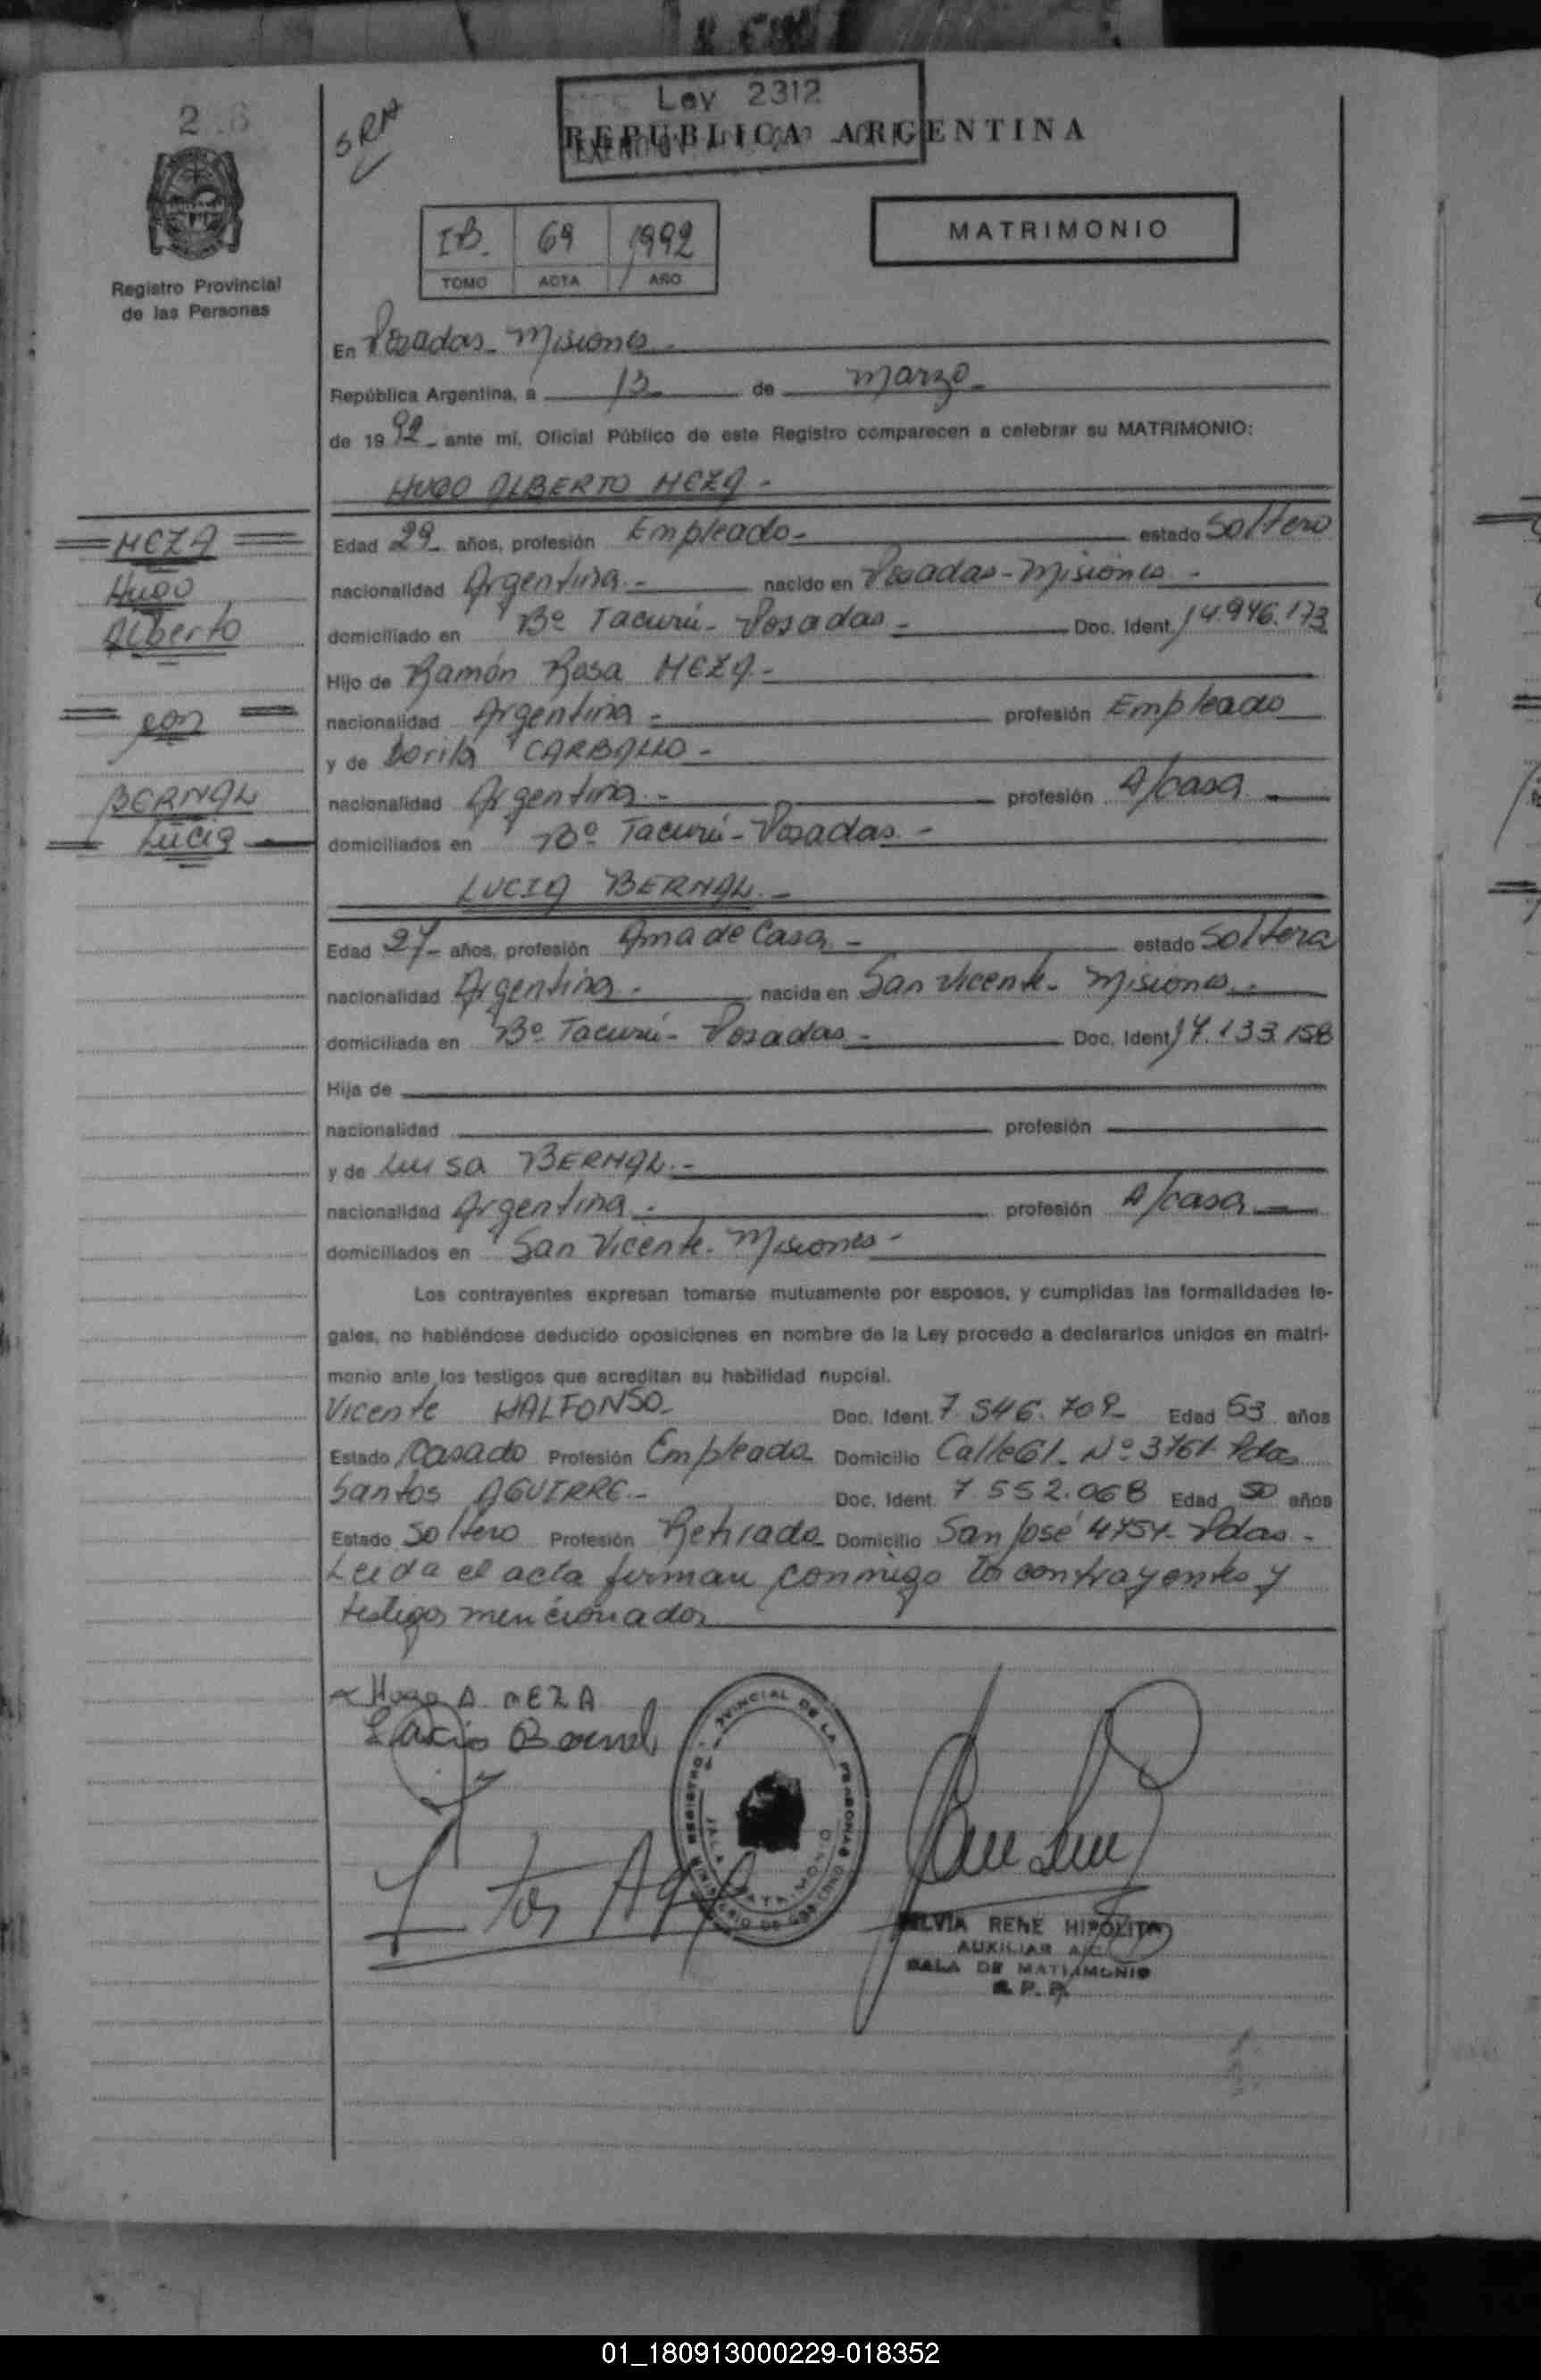 Ley 2312
REPUBLICA ARGENTINA
SRA
I B. 69 1992
TOMO ACTA AÑO
MATRIMONIO
Registro Provincial
de las Personas
En Posadas - Misiones
República Argentina, a 13 de Marzo
de 1992 ante mí, Oficial Público de este Registro comparecen a celebrar su MATRIMONIO:
HUGO ALBERTO MEZA -
MEZA
Hugo
Alberto
con
BERNAL
Lucia
Edad 29 años, profesión Empleado - estado Soltero
nacionalidad Argentina - nacido en Posadas - Misiones -
domiciliado en Bº Tacurú - Posadas - Doc. Ident. 14.946.173
Hijo de Ramón Rosa MEZA -
nacionalidad Argentina - profesión Empleado
y de Dorila CARBALLO -
nacionalidad Argentina - profesión A/casa
domiciliados en Bº Tacurú - Posadas -
LUCIA BERNAL -
Edad 27 - años, profesión Ama de Casa - estado Soltera
nacionalidad Argentina - nacida en San Vicente - Misiones -
domiciliada en Bº Tacurú - Posadas - Doc. Ident. 17.133.158
Hija de
nacionalidad profesión
y de Luisa BERNAL -
nacionalidad Argentina - profesión A/casa
domiciliados en San Vicente - Misiones -
Los contrayentes expresan tomarse mutuamente por esposos, y cumplidas las formalidades le-
gales, no habiéndose deducido oposiciones en nombre de la Ley procedo a declararlos unidos en matri-
monio ante los testigos que acreditan su habilidad nupcial.
Vicente HALFONSO - Doc. Ident. 7.546.709 Edad 53 años
Estado Casado Profesión Empleado Domicilio Calle 61 - Nº 3761 - Pdas
Santos AGUIRRE - Doc. Ident. 7.552.068 Edad 50 años
Estado Soltero Profesión Retirado Domicilio San José 4754 - Pdas -
Leida el acta firman conmigo los contrayentes y
testigos mencionados
Hugo A. MEZA
Lucia Bernal
REGISTRO PROVINCIAL DE LAS PERSONAS
SALA MATRIMONIO
MINISTERIO DE GOBIERNO
SILVIA RENE HIPOLITA
AUXILIAR A/C
SALA DE MATRIMONIO
R. P. P.
01_180913000229-018352